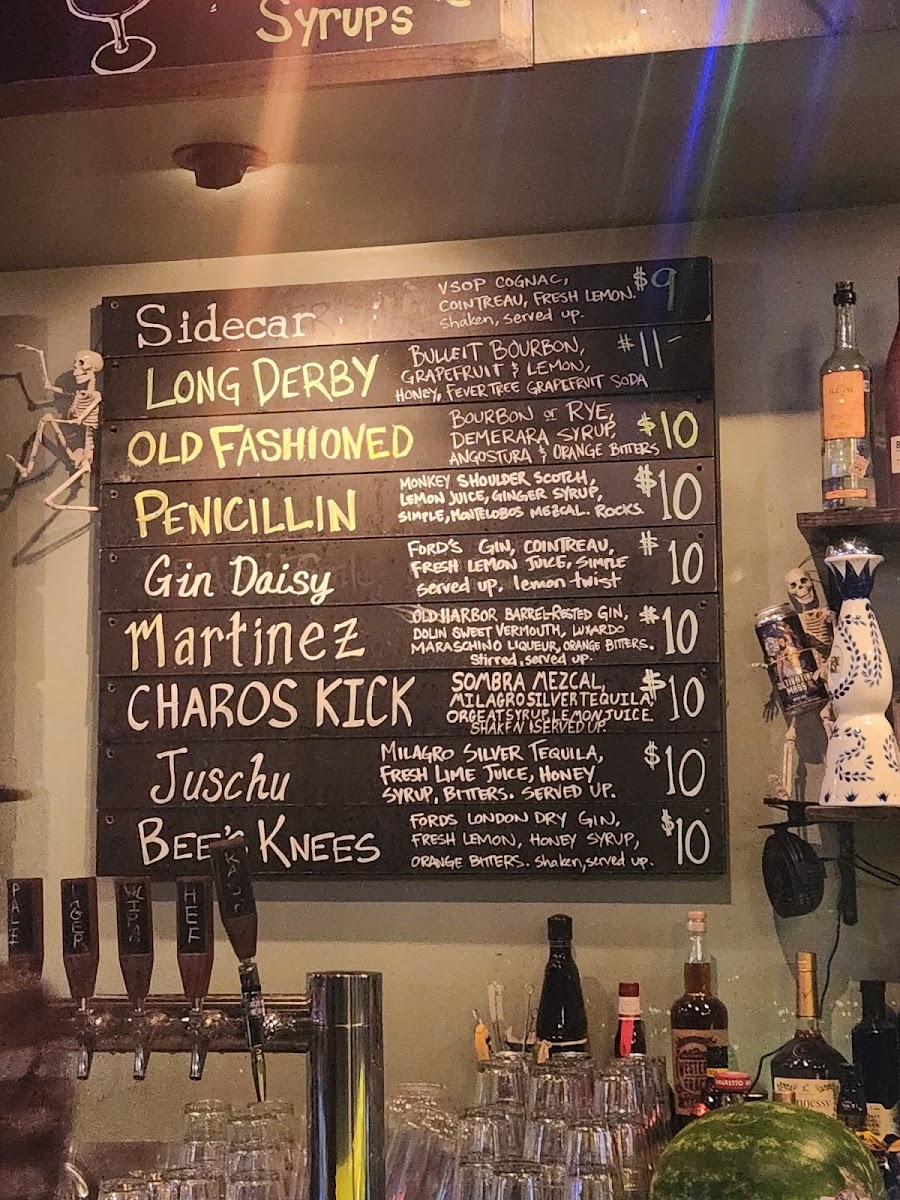 Syrups
Sidecar
VSOP COGNAC,
COINTREAU, FRESH LEMON.
shaken, served up.
$9
LONG DERBY
BULLEIT BOURBON,
GRAPEFRUIT & LEMON,
HONEY, FEVERTREE GRAPEFRUIT SODA
$11
OLD FASHIONED
BOURBON or RYE,
DEMERARA SYRUP,
ANGOSTURA & ORANGE BITTERS
$10
PENICILLIN
MONKEY SHOULDER SCOTCH,
LEMON JUICE, GINGER SYRUP,
SIMPLE, MONTELOBOS MEZCAL. ROCKS.
$10
Gin Daisy
FORD'S GIN, COINTREAU,
FRESH LEMON JUICE, SIMPLE
served up, lemon twist
$10
Martinez
OLD HARBOR BARREL-RESTED GIN,
DOLIN SWEET VERMOUTH, LUXARDO
MARASCHINO LIQUEUR, ORANGE BITTERS.
Stirred, served up.
$10
CHAROS KICK
SOMBRA MEZCAL,
MILAGRO SILVER TEQUILA,
ORGEAT SYRUP, LEMON JUICE.
SHAKEN & SERVED UP.
$10
Juschu
MILAGRO SILVER TEQUILA,
FRESH LIME JUICE, HONEY
SYRUP, BITTERS. SERVED UP.
$10
BEE'S KNEES
FORDS LONDON DRY GIN,
FRESH LEMON, HONEY SYRUP,
ORANGE BITTERS. shaken, served up.
$10
PALE
LAGER
HEF